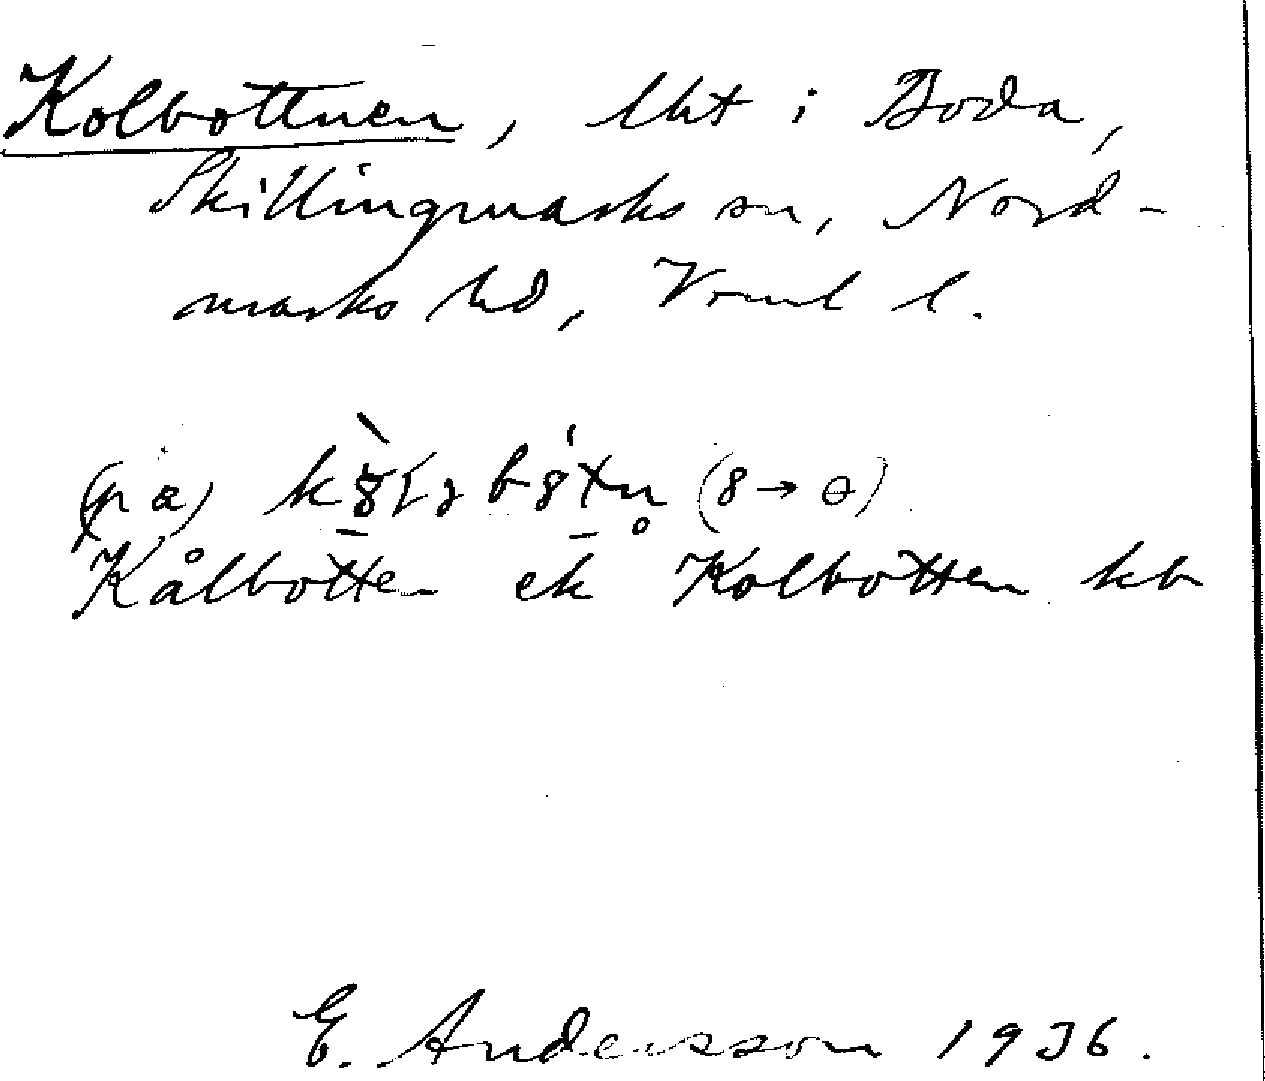 Kolbottnen, lht i Boda,
Skillingmarks sn, Nord-
marks hd, Vrml l.
(på)
Kålbotten ek Kolbotten kb
E. Andersson 1936.